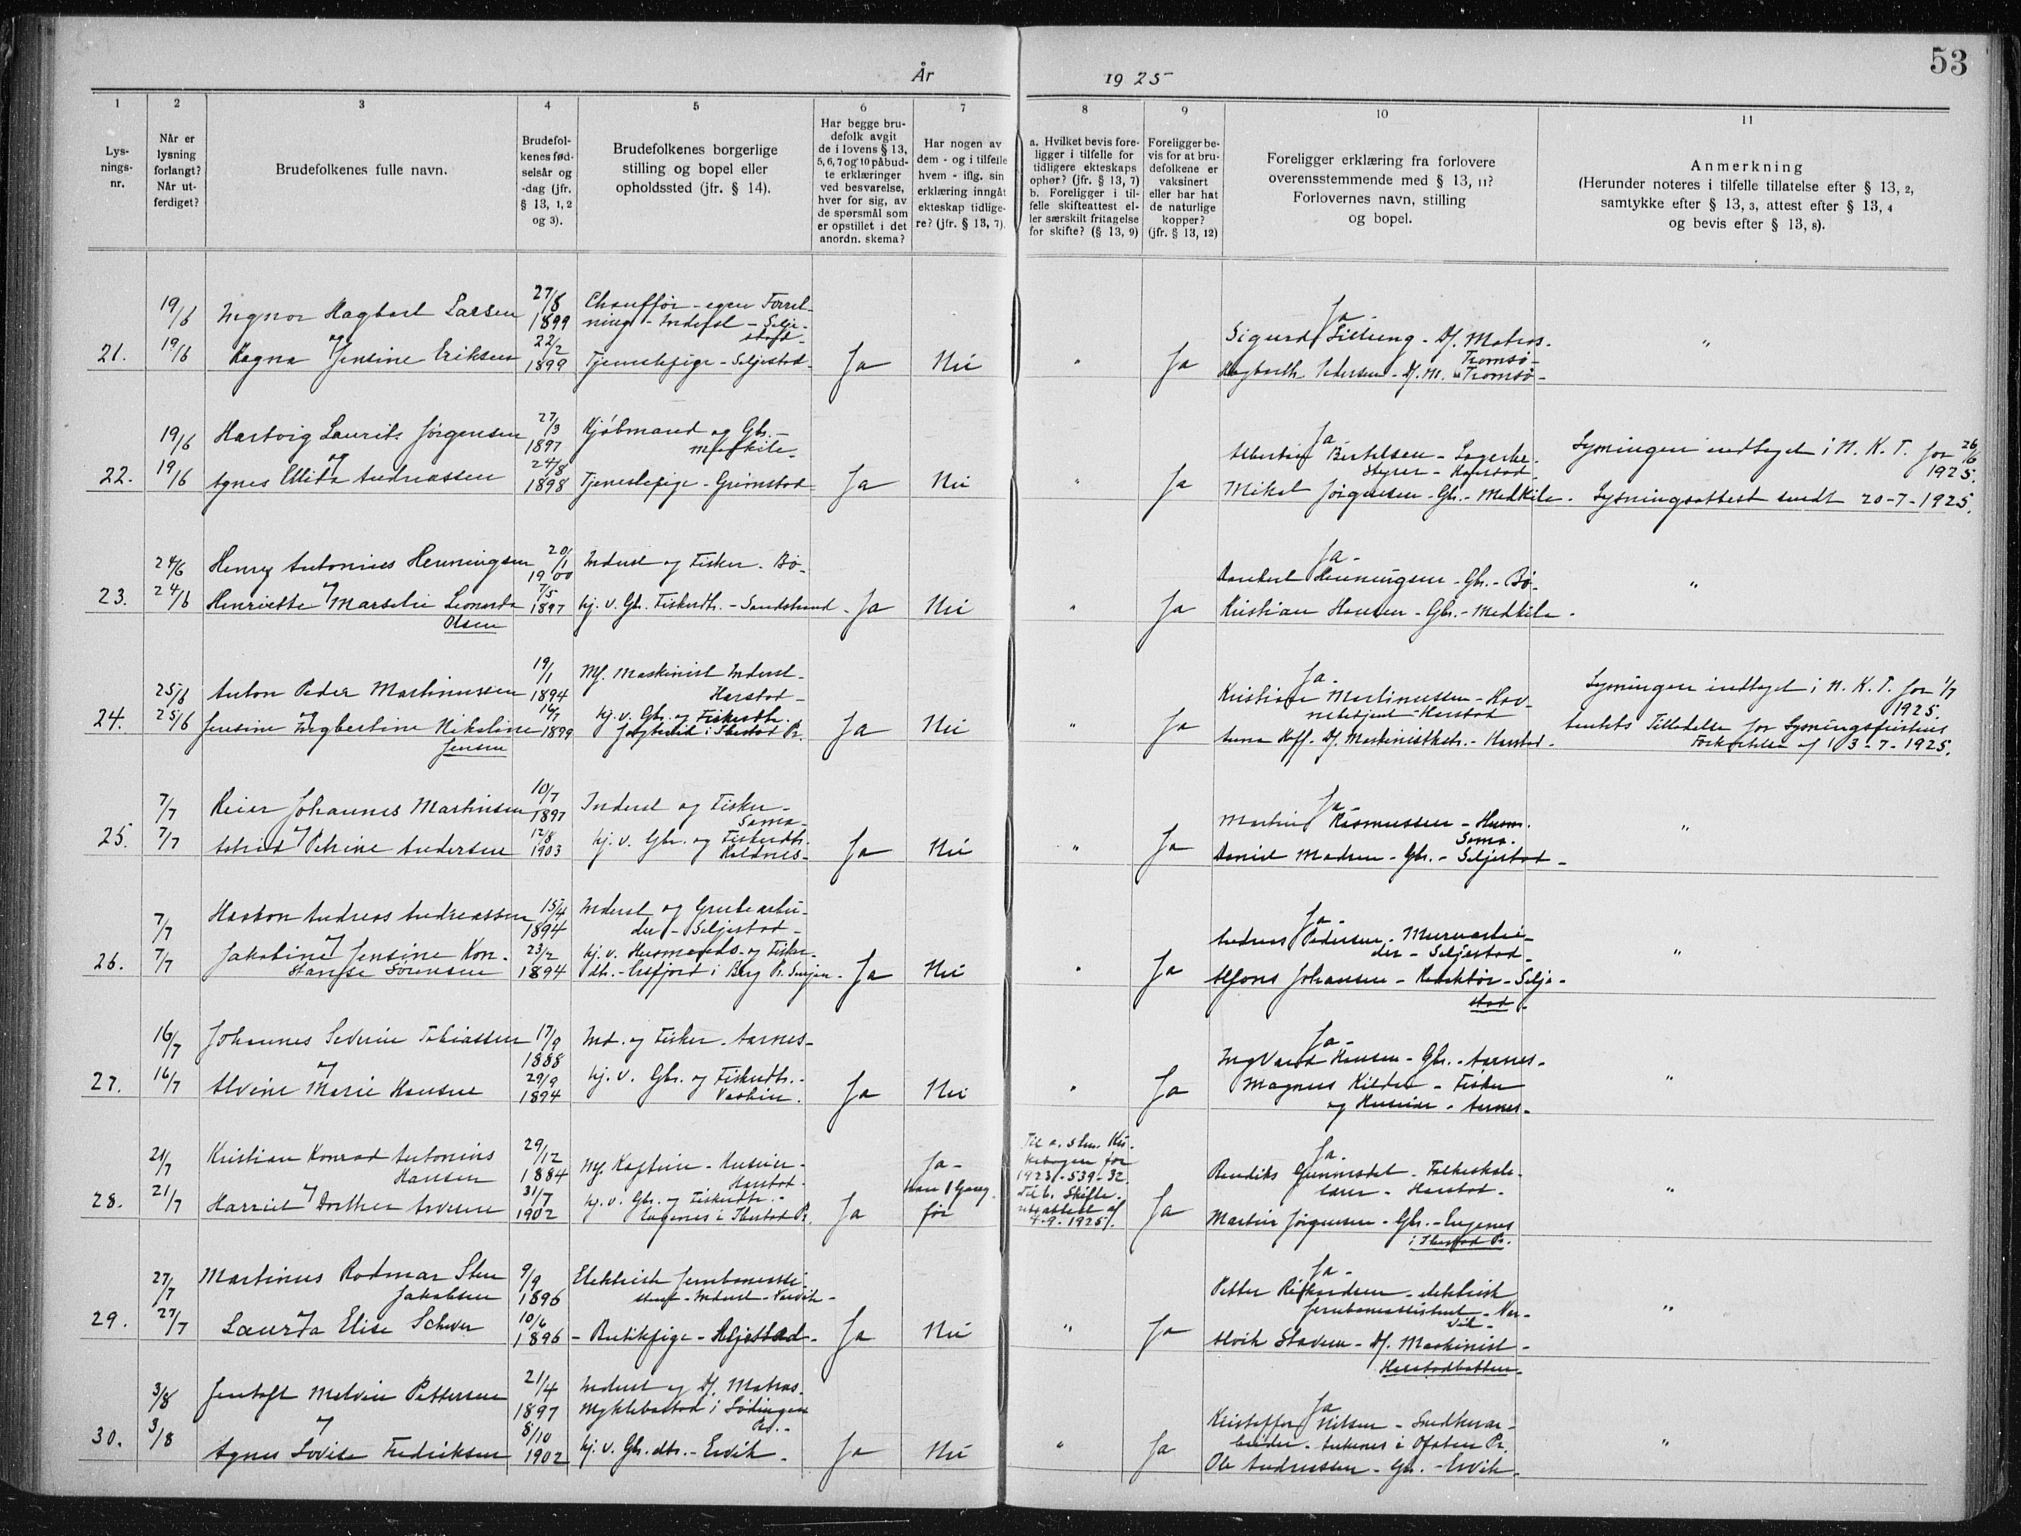 53
År 1925
1 2 3 4 5 6 7 8 9 10 11
Lys-
nings-
nr.
Når er
lysning
forlangt?
Når ut-
ferdiget?
Brudefolkenes fulle navn.
Brudefol-
kenes fød-
selsår og
-dag (jfr.
§ 13, 1, 2
og 3).
Brudefolkenes borgerlige
stilling og bopel eller
opholdssted (jfr. § 14).
Har begge bru-
defolk avgit
de i lovens § 13,
5, 6, 7 og 10 påbud-
te erklæringer
ved besvarelse,
hver for sig, av
de spørsmål som
er opstillet i det
anordn. skema?
Har nogen av
dem - og i tilfelle
hvem - iflg. sin
erklæring inngåt
ekteskap tidlige-
re? (jfr. § 13, 7).
a. Hvilket bevis fore-
ligger i tilfelle for
tidligere ekteskaps
ophør? (jfr. § 13, 7)
b. Foreligger i til-
felle skifteattest el-
ler særskilt fritagelse
for skifte? (§ 13, 9)
Foreligger be-
vis for at bru-
defolkene er
vaksinert
eller har hat
de naturlige
kopper?
(jfr. § 13, 12)
Foreligger erklæring fra forlovere
overensstemmende med § 13, 11?
Forlovernes navn, stilling
og bopel.
Anmerkning
(Herunder noteres i tilfelle tillatelse efter § 13, 2,
samtykke efter § 13, 3, attest efter § 13, 4
og bevis efter § 13, 8).
21.
19/6
19/6
Hagbart Larsen
og
Ragna Jensine Eriksen
27/8
1899
22/2
1899
Chauffør - egen Forret-
ning - Inderst - Selje-
stad -
Tjenestepige - Seljestad -
Ja Nei " Ja
Ja -
Sigurd - D/. Matros -
Tromsø -
Hagbarth Pedersen - D/. M. - Tromsø -
"
22.
19/6
19/6
Hartvig Laurits Jørgensen
og
Agnes Elida Andreassen
27/3
1897
24/8
1898
Kjøbmand og Gbr. -
Medkile -
Tjenestepige - Grimstad
Ja Nei " Ja
Ja
Bertelsen - Lagerbe-
styrer - Harstad
Mikal Jørgensen - Gbr. - Medkile -
Lysningen indtaget i N. K. T. for 26/6
1925.
Lysningsattest sendt 20-7-1925.
23.
24/6
24/6
Henry Antonius Henningsen
og
Henriette Marselie Leonarda
Olsen
20/1
1900
7/5
1897
Inderst og Fisker - Bø -
hj. v. Gbr. Fiskerdtr. - Sandstrand -
Ja Nei " Ja
Ja -
Henningsen - Gbr. - Bø -
Kristian Hansen - Gbr. - Medkile -
"
24.
25/6
25/6
Anton Peder Martinussen
og
Jensine Engbertine Nikoline
Jensen
19/1
1894
16/7
1899
M/. Maskinist Inderst -
Harstad -
hj. v. Gbr. og Fiskerdtr.
i Ibestad Pr.
Ja Nei " Ja
Ja -
Kristian Martinussen - Hav-
nebetjent - Harstad
Anna - D/. Maskinistkstr. - Harstad -
Lysningen indtaget i N. K. T. for 1/7
1925.
Amtets Tilladelse for Lysningsfristens
Forkortelse af 13-7-1925.
25.
7/7
7/7
Reier Johannes Martinsen
og
Astrid Petrine Andersen
10/7
1897
12/8
1903
Inderst og Fisker -
Sama -
hj. v. Gbr. og Fiskerdtr.
Kaldnes -
Ja Nei " Ja
Ja -
Martin Rasmussen - Husm.
Sama -
Daniel Madsen - Gbr. - Seljestad -
"
26.
7/7
7/7
Haakon Andreas Andreassen
og
Jakobine Jensine Kon-
stanse Sørensen
15/4
1894
23/2
1894
Inderst og Grubearbei-
der - Seljestad -
hj. v. Husmands- og Fisker-
dtr. - i Berg Pr. Senjen -
Ja Nei " Ja
Ja -
Andreas Pedersen - Murerarbei-
der - Seljestad -
Alfons Johansen - Redaktør - Selje-
stad -
"
27.
16/7
16/7
Johannes Severin Tobiassen
og
Alvine Marie Hansen
17/9
1888
29/9
1894
Ind. og Fisker - Aarnes -
hj. v. Gbr. og Fiskerdtr. -
Ja Nei " Ja
Ja -
Ingvard Hansen - Gbr. - Aarnes -
Magnus - Fisker
og Huseier - Aarnes -
"
28.
21/7
21/7
Kristian Konrad Antonius
Hansen
og
Harriet Dorthea
29/12
1884
31/7
1902
M/. Kaptein - Huseier -
Harstad -
hj. v. Gbr. og Fiskerdtr. -
Engenes i Ibestad Pr.
Ja
Ja -
Han 1 Gang
før
Til a. Kir-
kebogen for
1923 - 539 - 32.
Til b. Skifte-
retsattest af
4-9-1925.
Ja
Ja -
Bendiks - Folkeskole-
lærer - Harstad -
Martin Jørgensen - Gbr. - Engenes
i Ibestad Pr.
"
29.
27/7
27/7
Martinus Rodmar Sten
Jakobsen
og
Laura Elise
9/9
1896
10/6
1896
Elektrisk Jernbaneassi-
stent - Inderst - Narvik -
- Butikpige - Seljestad -
Ja Nei " Ja
Ja -
Petter Rikardsen - elektrisk
Jernbaneassistent - Nar-
vik -
Alvik - D/. Maskinist -
Harstadbotten -
"
30.
3/8
3/8
Jentoft Melvin Pettersen
og
Agnes Lovise Fredriksen
21/4
1897
8/10
1902
Inderst og D/. Matros -
Myklebostad i Lødingen
Pr. -
hj. v. Gbr. dtr. - Ervik -
Ja Nei " Ja
Ja
Kristoffer Nilsen - Snedkerar-
beider - Ankenes i Ofoten Pr.
Ole Andreassen - Gbr. - Ervik -
"